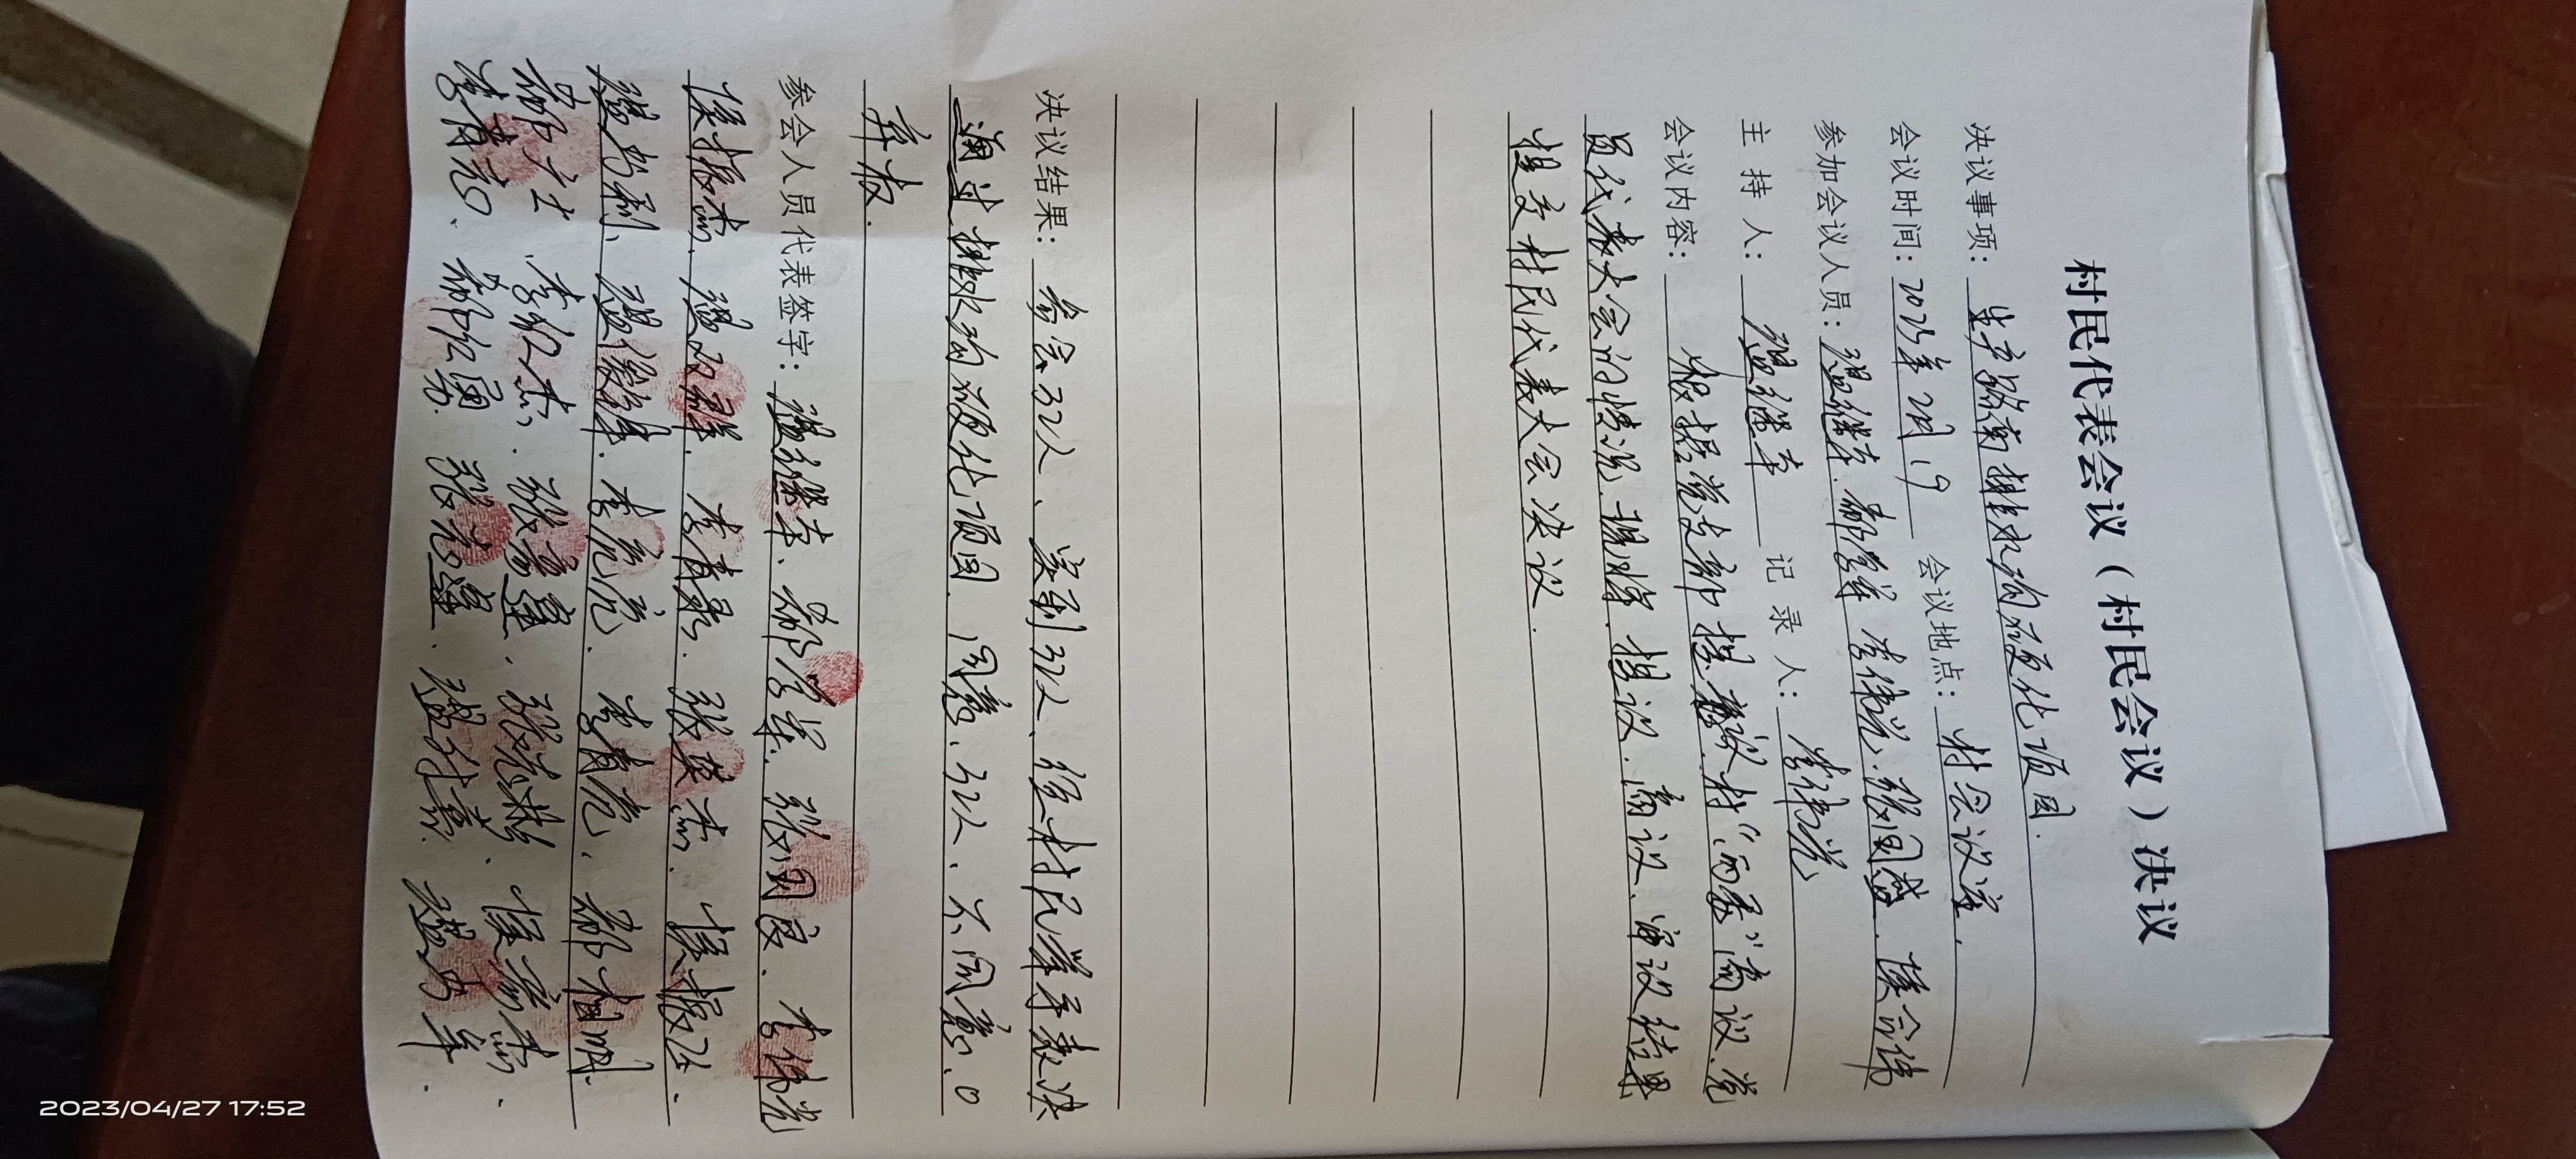 村民代表会议（村民会议）决议
决议事项: 生产路南排水沟硬化项目.
会议时间: 2023年2月19 会议地点: 村会议室.
参加会议人员: 温继车.郝学军 李伟光.张国盛.侯合伟
主持人: 温继车 记录人: 李伟光
会议内容: 根据党支部提议.村“两委”商议.党
员代表大会的情况.现将.提议.商议.审议结果
提交村民代表大会决议.
决议结果: 参会32人、实到32人、经村民举手表决
通过排水沟硬化项目.同意.32人.不同意.0
弃权.
参会人员代表签字: 温继车.郝学军.张国良.李伟光
侯振杰.温双群.李青录.张英杰.侯振飞.
温书利、温俊锋.李亮亮.李青亮.郝相明.
郝广士.李红杰.张彦逢.张志彬.侯彦杰.
李青志.郝红勇.张志逢.温付喜.温书年.
2023/04/27 17:52